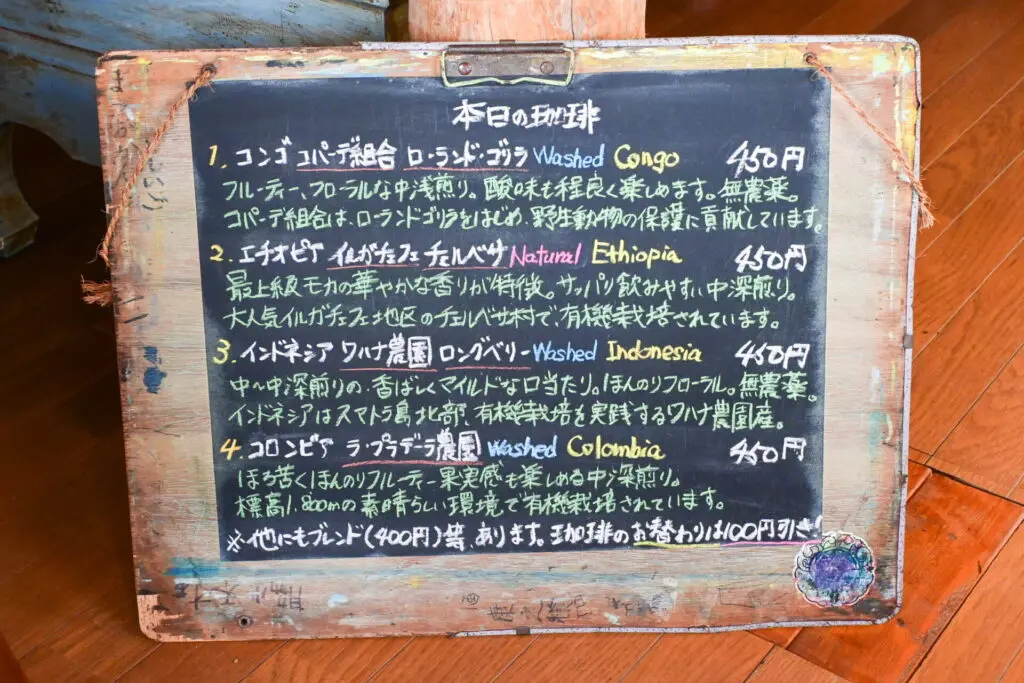 本日の珈琲
1. コンゴ コパーデ組合 ロ・ランド・ゴリラ Washed Congo 450円
フルーティー、フローラルな中浅煎り。酸味も程良く楽しめます。無農薬。
コパーデ組合は、ローランドゴリラをはじめ、野生動物の保護に貢献しています。
2. エチオピア イルガチェフェ チェルベサ Natural Ethiopia 450円
最上級モカの華やかな香りが特徴。サッパリ飲みやすい中深煎り。
大人気イルガチェフェ地区のチェルベサ村で、有機栽培されています。
3. インドネシア ワハナ農園 ロングベリー Washed Indonesia 450円
中〜中深煎りの、香ばしくマイルドな口当たり。ほんのりフローラル。無農薬。
インドネシアはスマトラ島北部、有機栽培を実践するワハナ農園産。
4. コロンビア ラ・プラデーラ農園 Washed Colombia 450円
ほろ苦くほんのりフルーティー果実感も楽しめる中深煎り。
標高1,800mの素晴らしい環境で有機栽培されています。
※他にもブレンド(400円)等、あります。珈琲のお替わりは100円引き!